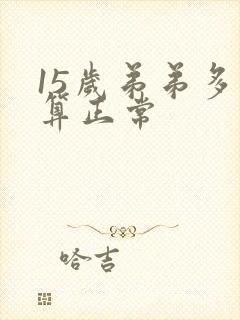 15歲弟弟多
算正常
哈吉